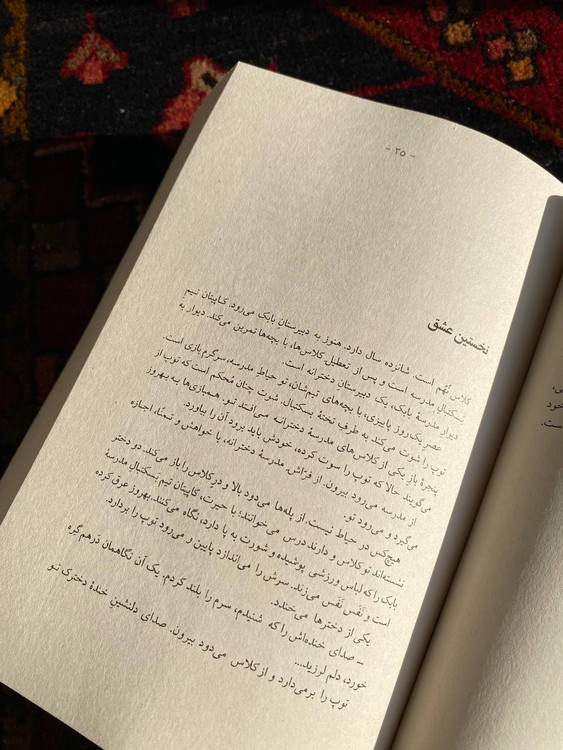 - ۲۵ -
نخستین عشق
کلاس نُهم است. شانزده سال دارد. هنوز به دبیرستان بابک می‌رود. کاپیتان تیم
بسکتبال مدرسه است و پس از تعطیل کلاس‌ها، با بچه‌ها تمرین می‌کند. دیوار به
دیوارِ مدرسهٔ بابک، یک دبیرستانِ دخترانه است.
عصرِ یک روز پاییزی، با بچه‌های تیم‌شان تو حیاطِ مدرسه، سرگرمِ بازی است.
توپ را شوت می‌کند به طرفِ تختهٔ بسکتبال. شوت چنان مُحکم است که توپ از
پنجرهٔ بازِ یکی از کلاس‌های مدرسهٔ دخترانه می‌افتد تو. همبازی‌ها به بهروز
می‌گویند حالا که توپ را سوت کرده، خودش باید برود آن را بیاورد.
از مدرسه می‌رود بیرون. از فرّاشِ مدرسهٔ دخترانه، با خواهش و تمنّا، اجازه
می‌گیرد و می‌رود تو.
هیچ‌کس در حیاط نیست. از پله‌ها می‌دود بالا و درِ کلاس را باز می‌کند. دو دختر
نشسته‌اند تو کلاس و دارند درس می‌خوانند؛ با حیرت، کاپیتان تیم بسکتبال مدرسهٔ
بابک را که لباس ورزشی پوشیده و شورت به پا دارد، نگاه می‌کنند. بهروز عرق کرده
است و نفَس نفَس می‌زند. سرش را می‌اندازد پایین و می‌رود توپ را بردارد.
یکی از دخترها می‌خندد.
– صدای خنده‌اش را که شنیدم، سرم را بلند کردم. یک آن نگاهمان دَرهم گره
خورد، دلم لرزید...
توپ را برمی‌دارد و از کلاس می‌دود بیرون. صدای دلنشینِ خندهٔ دخترک تو